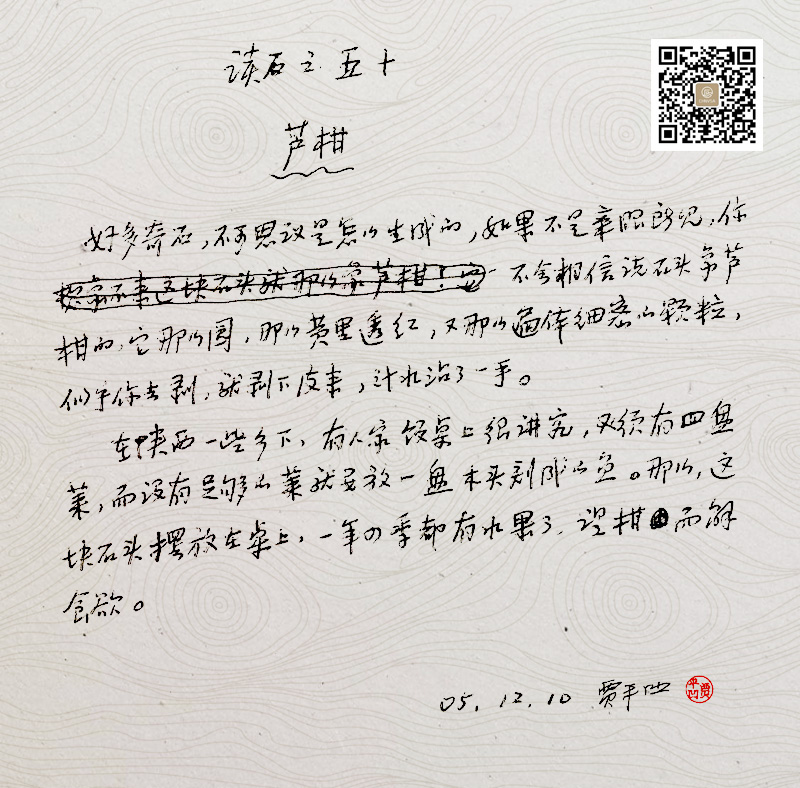 读石之五十
芦柑
好多奇石，不可思议是怎么生成的，如果不是亲眼所见，你
想象不来这块石头就那么象芦柑！ 不会相信说石头象芦
柑的，它那么圆，那么黄里透红，又那么遍体细密的颗粒，
似乎你去剥，就剥下皮来，汁水沾了一手。
在陕西一些乡下，有人家饭桌上很讲究，必须有四盘
菜，而没有足够的菜就要放一盘木头刻成的鱼。那么，这
块石头摆放在桌上，一年四季都有水果了，望柑而解
食欲。
05.12.10 贾平凹
贾平凹